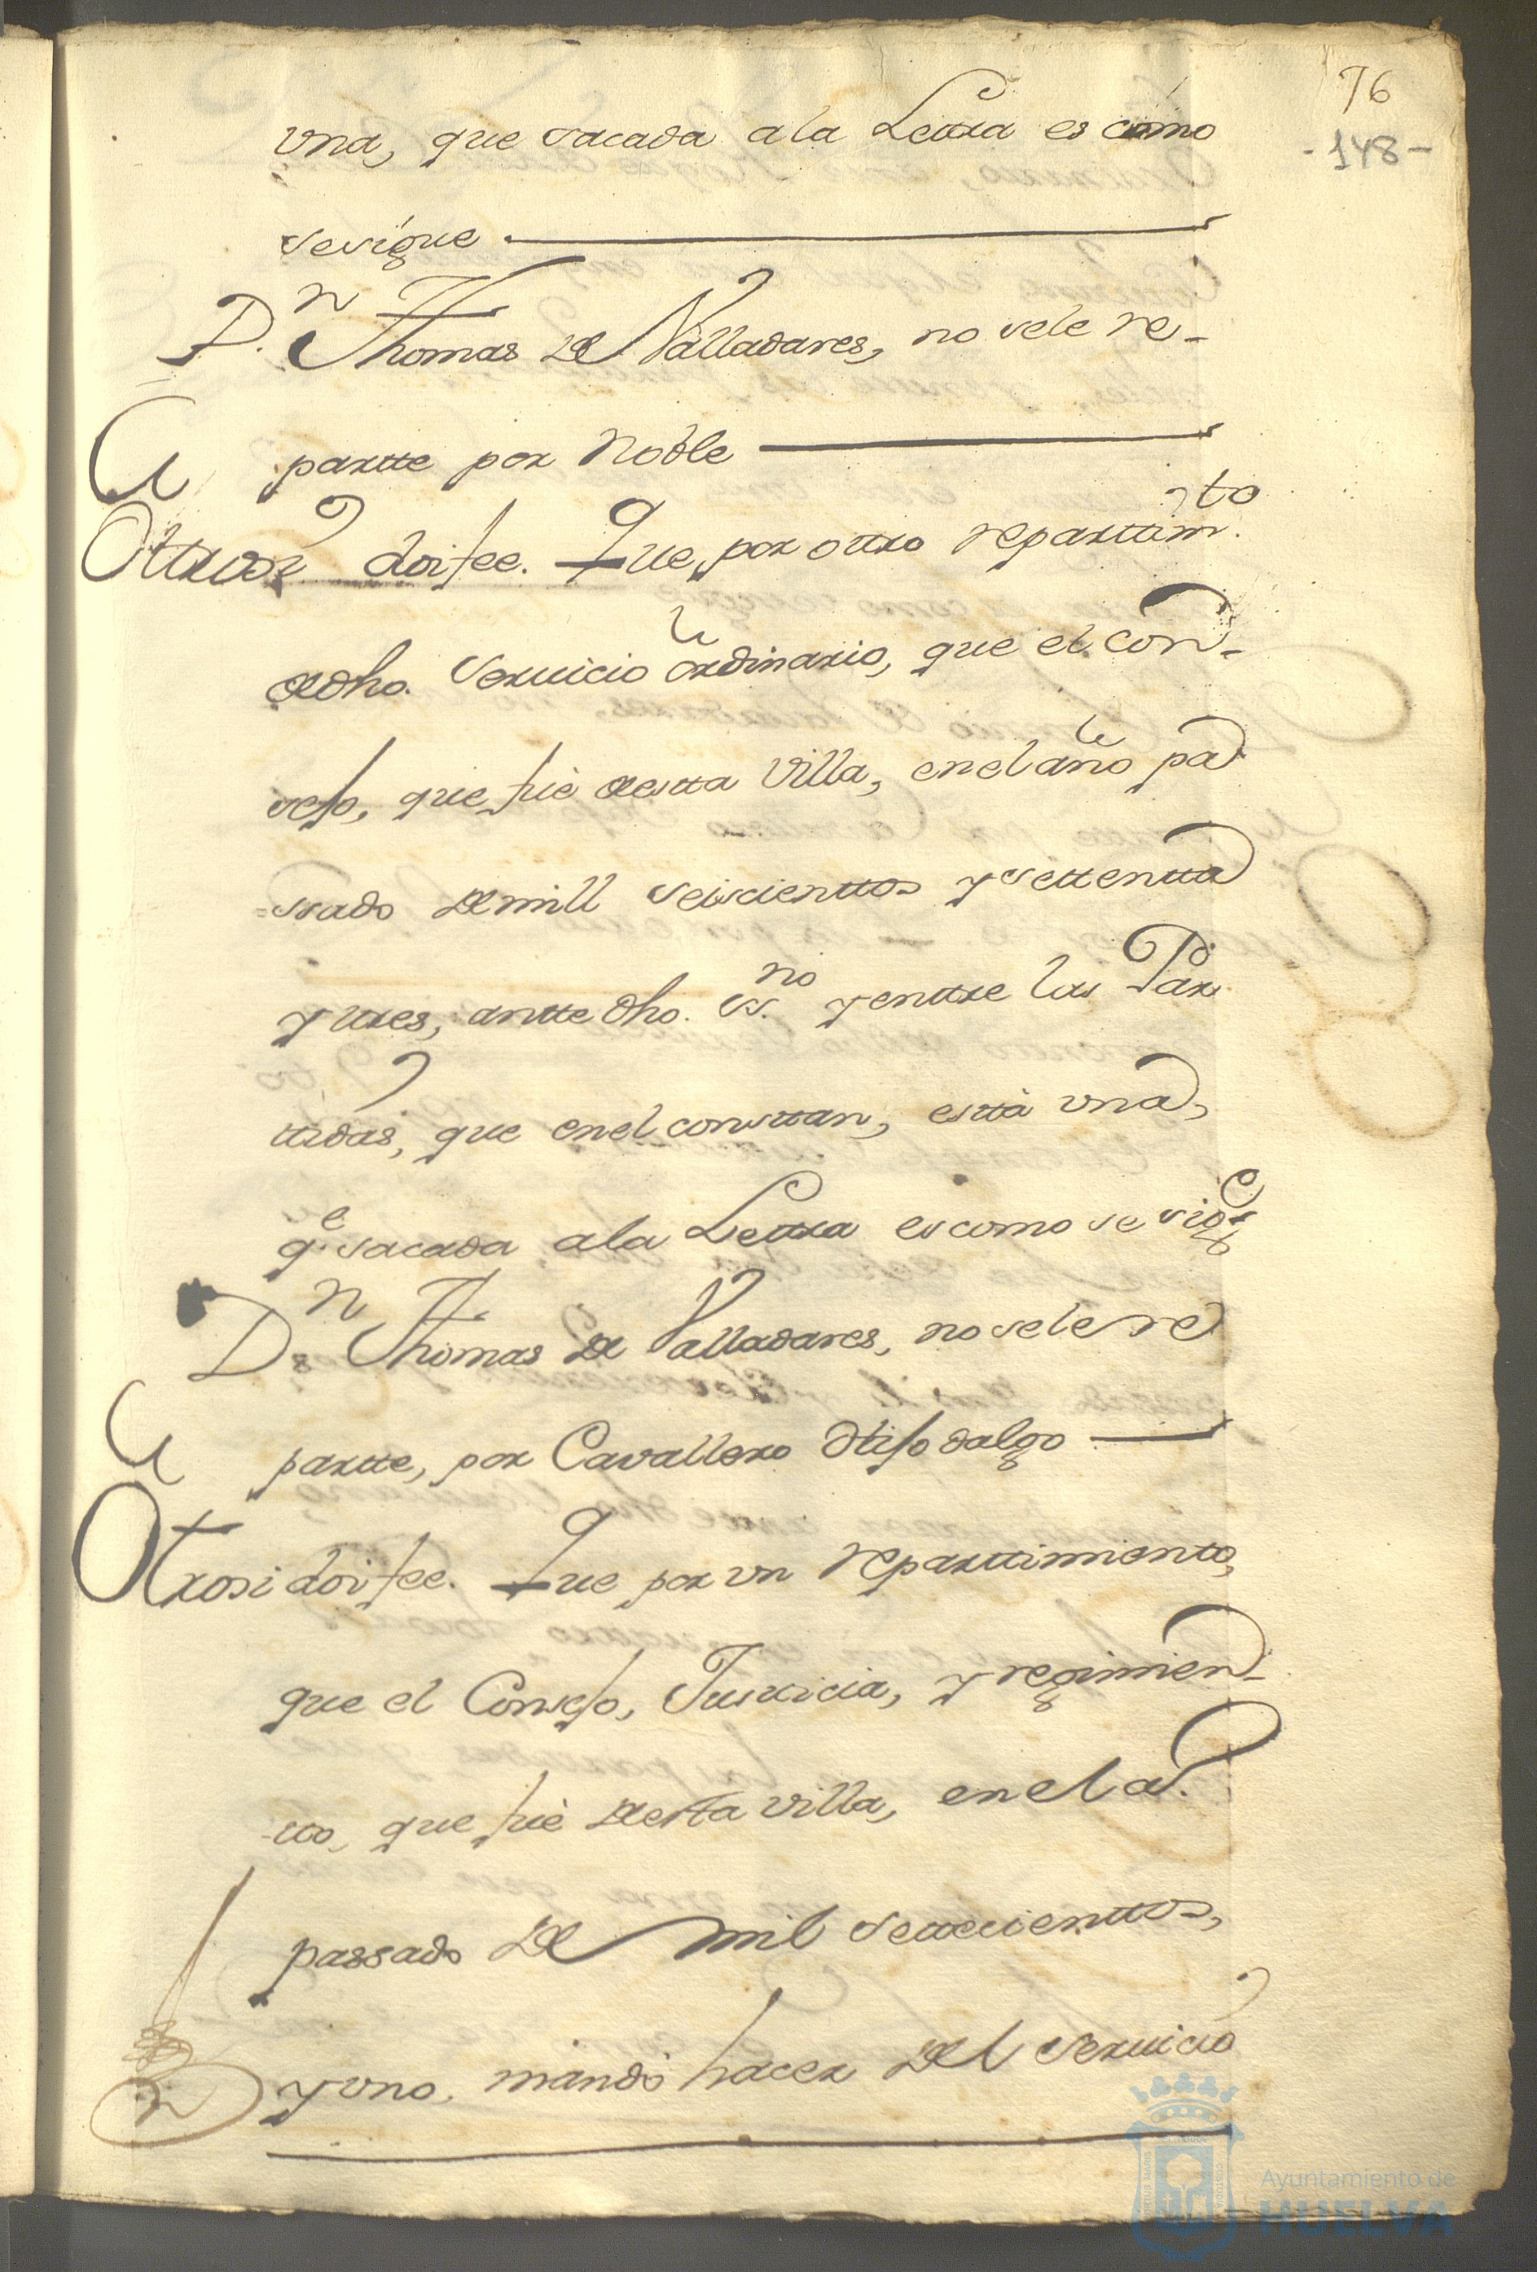 76
-148-
vna, que sacada a la Lettra es como
se sigue
D.n Thomas de Valladares, no se le re-
partte por Noble
Ottrosi doi fee. Que por ottro reparttim.to
de dho. Seruicio ordinario, que el Con-
sejo, que fuè desta Villa, en el año pa
ssado de mill seiscienttos y settentta
y ttres, antte dho. ss.no y enttre las Par
ttidas, que en el consttan, esttà vna,
q.e sacada, a la Lettra es como se sigue
D.n Thomas de Valladares, no se le re
partte, por Cavallero Hijo dalgo
Otrosi doi fee. Que por vn reparttimiento,
que el Consejo, Justticia, y regimien-
tto, que fuè desta villa, en el a.
passado de mil settecienttos,
y vno, mandò hacer del seruicio
Ayuntamiento de
HUELVA